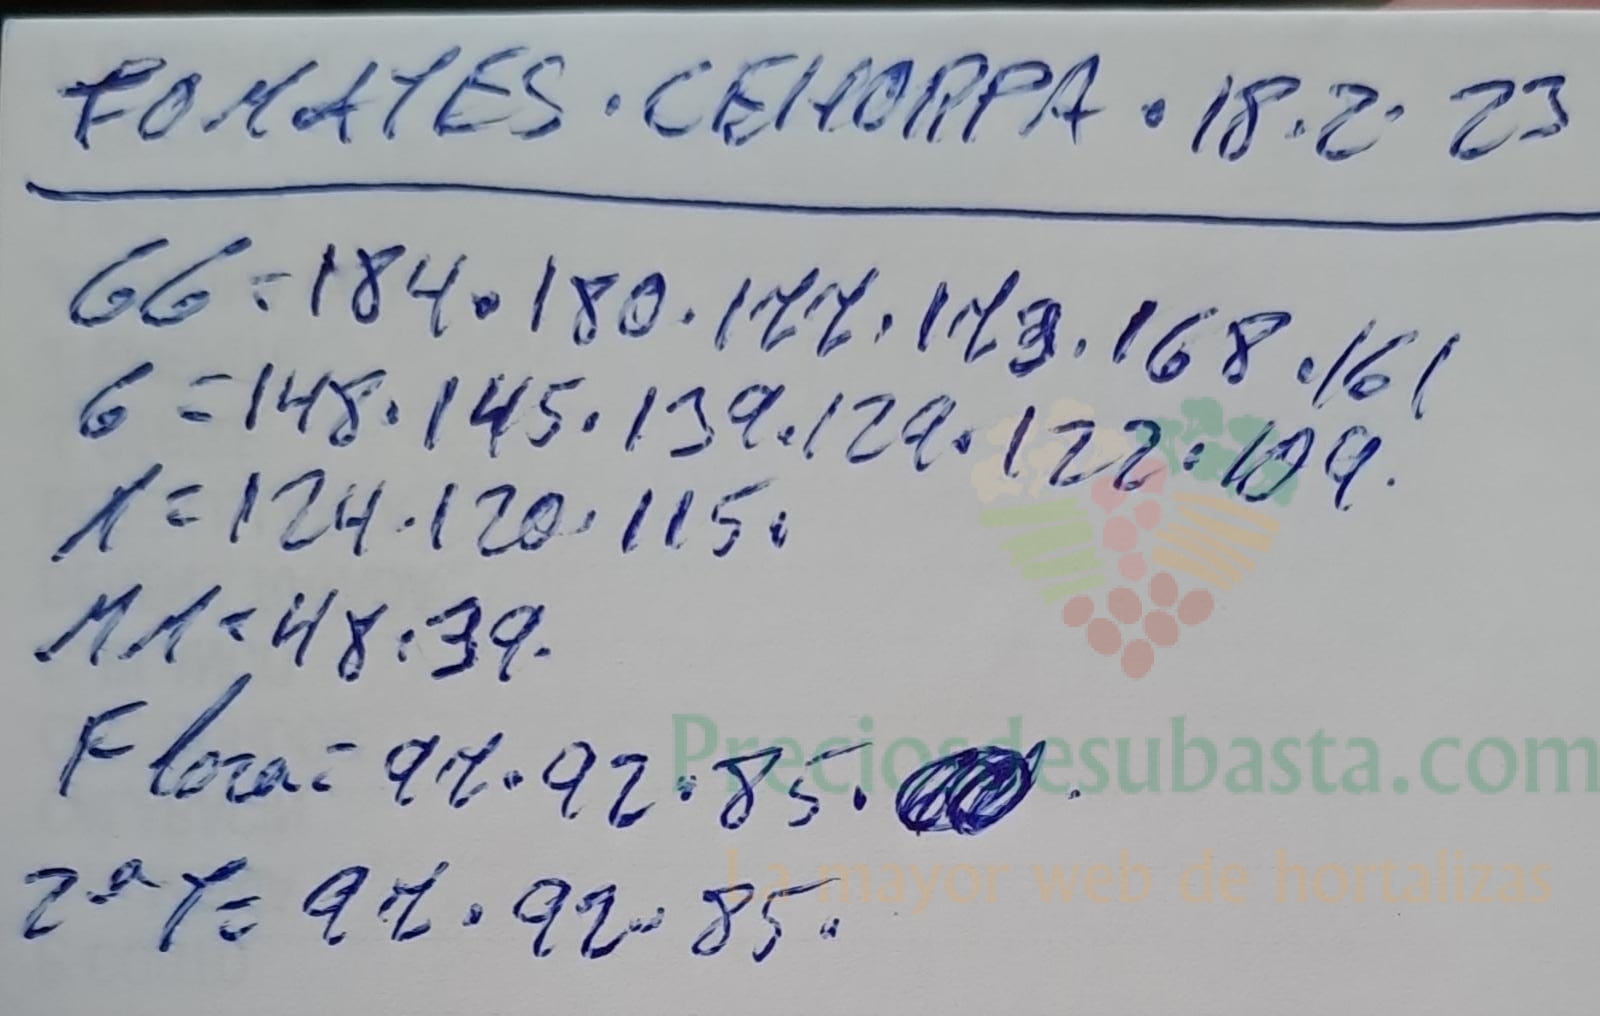 TOMATES · CEHORPA · 18·2·23
GG = 184 · 180 · 177 · 173 · 168 · 161
G = 148 · 145 · 139 · 129 · 122 · 109.
M = 124 · 120 · 115.
MM = 48 · 39.
Flora = 97 · 92 · 85 ·
2ª T = 97 · 92 · 85 ·
Preciosdesubasta.com
La mayor web de hortalizas